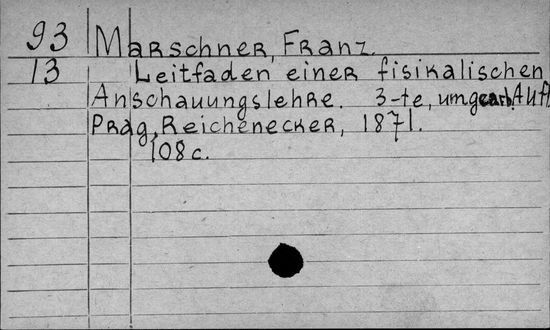 93 Marschner, Franz.
13 Leitfaden einer fisikalischen
Anschauungslehre. 3-te, umgearb. Aufl.
Prag, Reichenecker, 1871.
108 c.